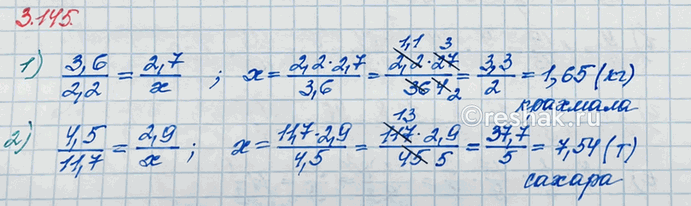 3.145.
1) 3,6/2,2 = 2,7/x ; x = 2,2·2,7/3,6 = 2,2·27/36 = 3,3/2 = 1,65 (кг)
1,1 3
4 2
крахмала
2) 4,5/11,7 = 2,9/x ; x = 11,7·2,9/4,5 = 117·2,9/45 = 37,7/5 = 7,54 (т)
13
5
сахара
reshak.ru